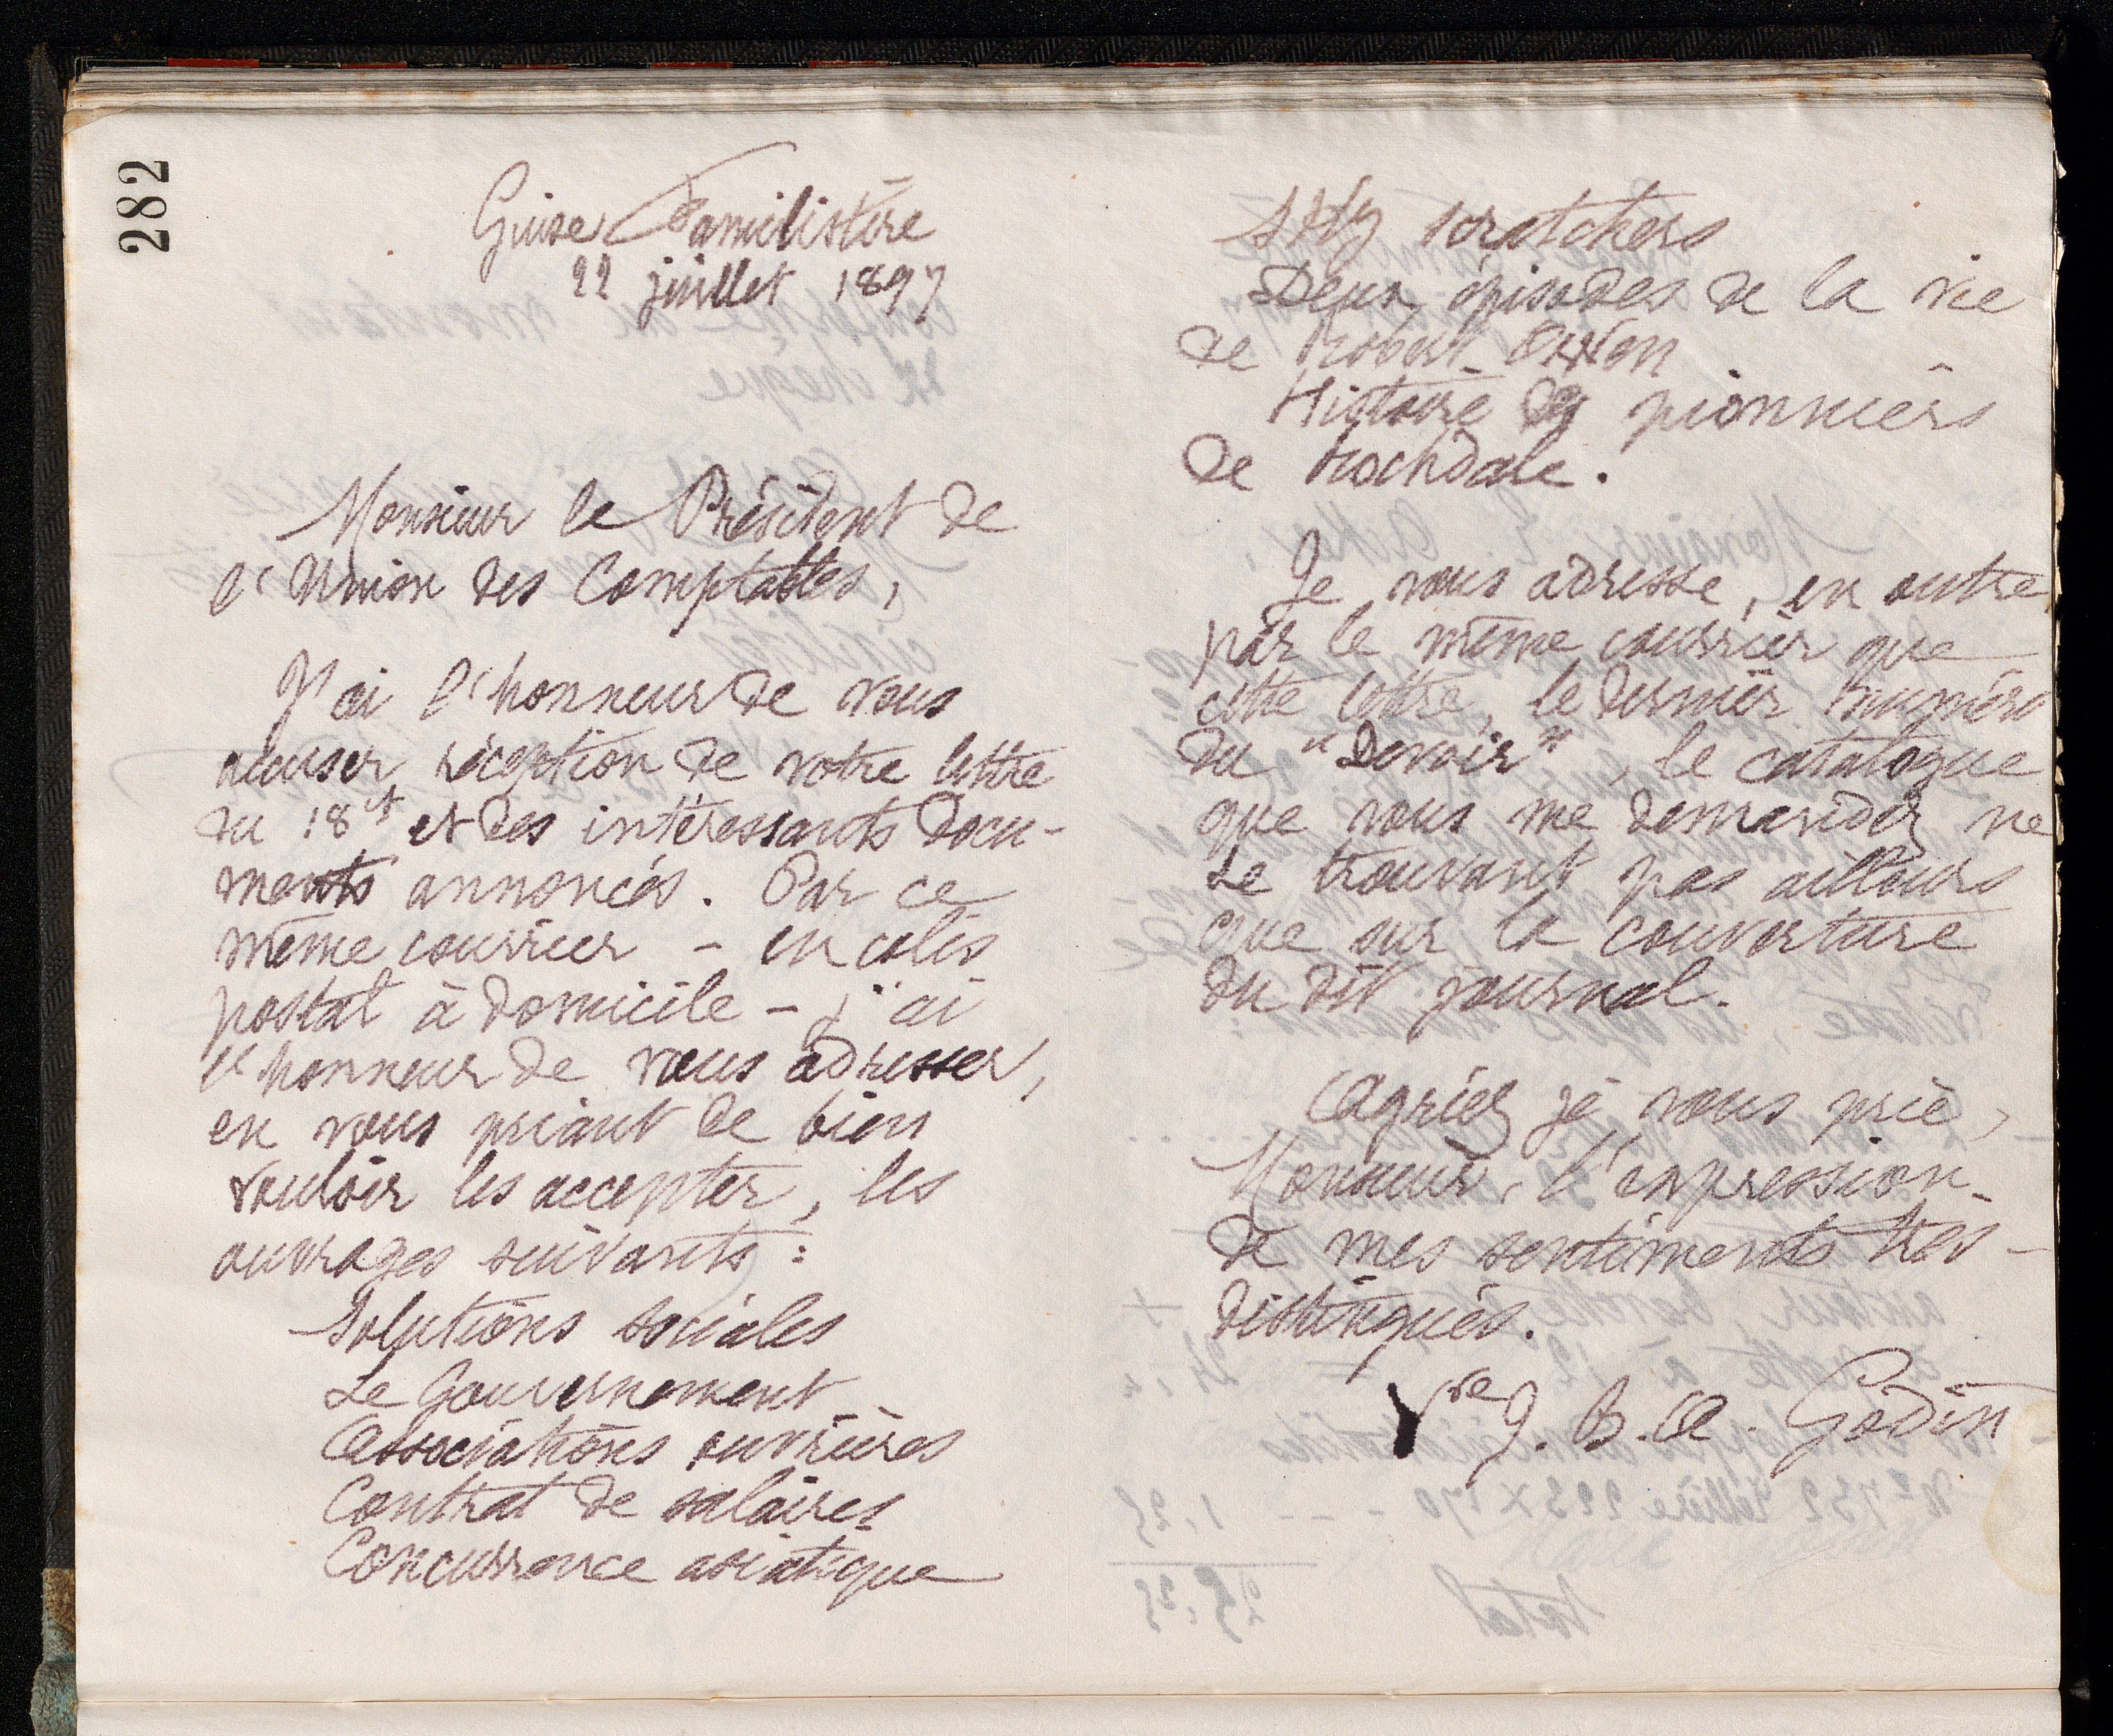 282
Guise Familistère
22 juillet 1897
Monsieur le Président de
l'Union des Comptables,
J'ai l'honneur de vous
accuser réception de votre lettre
du 18 ct et des intéressants docu-
ments annoncés. Par ce
même courrier - en colis
postal à domicile - j'ai
l'honneur de vous adresser,
en vous priant de bien
vouloir les accepter, les
ouvrages suivants :
Solutions sociales
Le Gouvernement
Associations ouvrières
Contrat de salaires
Concurrence asiatique
scratchers
Deux épisodes de la vie
de robert Owen
Histoire des pionniers
de Rochdale.
Je vous adresse, en outre,
par le même courrier que
cette lettre, le dernier numéro
du "Devoir", le catalogue
que vous me demandez ne
se trouvant pas ailleurs
que sur la couverture
du dit journal.
Agréez je vous prie,
Monsieur, l'expression
de mes sentiments très-
distingués.
Vve J. B. A. Godin